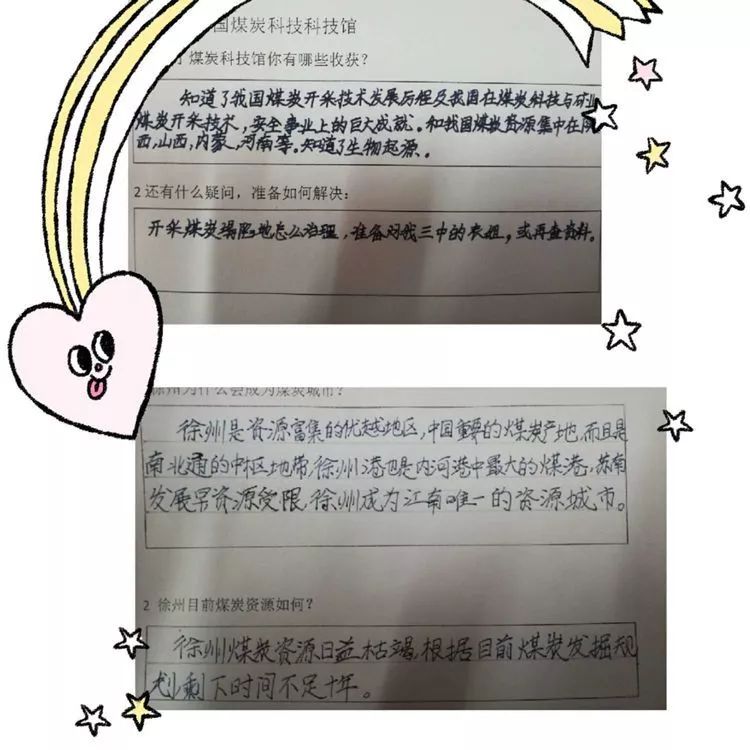 国煤炭科技科技馆
了煤炭科技馆你有哪些收获？
知道了我国煤炭开采技术发展历程及我国在煤炭科技与矿业
煤炭开采技术，安全事业上的巨大成就。和我国煤炭资源集中在陕
西，山西，内蒙，河南等。知道了生物起源。
2 还有什么疑问，准备如何解决：
开采煤炭塌陷地怎么治理，准备问我三中的表姐，或再查资料。
徐州为什么会成为煤炭城市？
徐州是资源富集的优越地区，中国重要的煤炭产地，而且是
南北通的中枢地带，徐州港也是内河港中最大的煤港，苏南
发展资源受限，徐州成为江南唯一的资源城市。
2 徐州目前煤炭资源如何？
徐州煤炭资源日益枯竭，根据目前煤炭发掘规
划剩下时间不足十年。